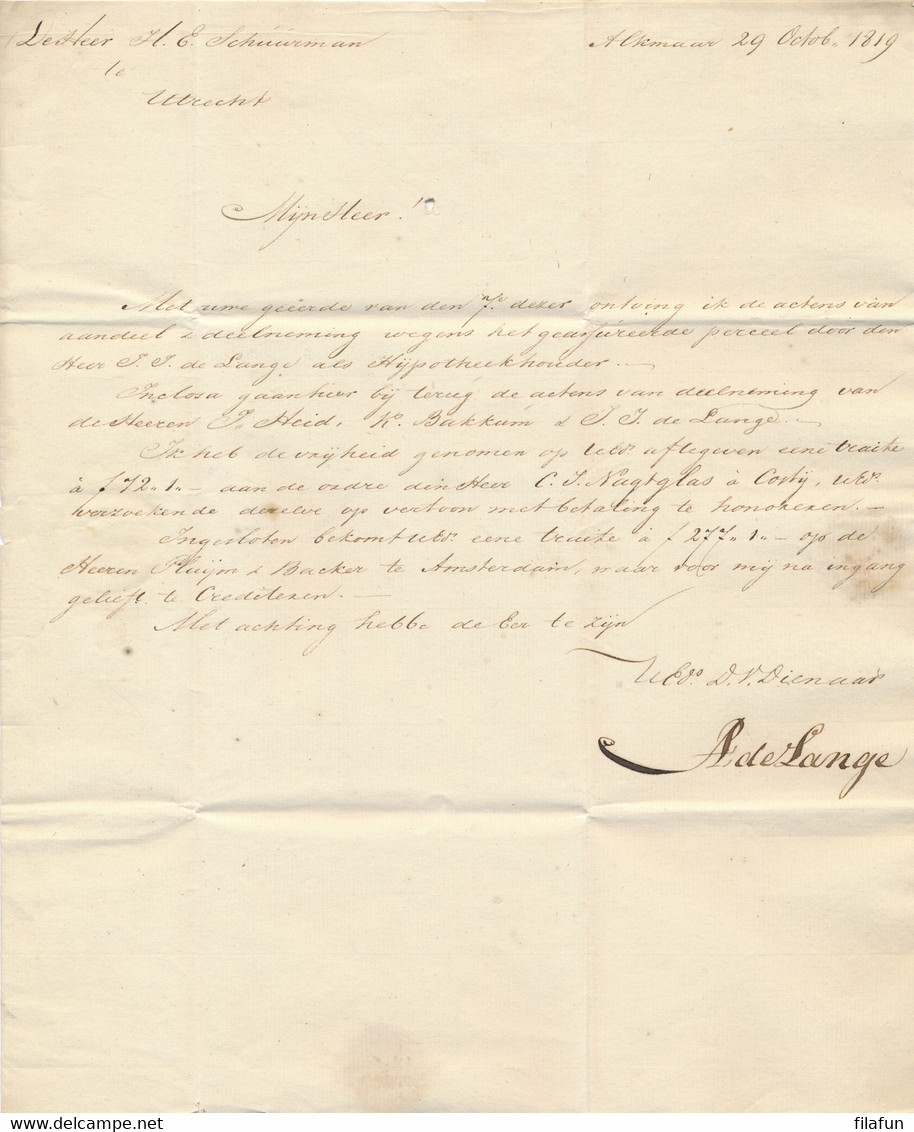 De Heer H. E. Schuurman Alkmaar 29 Octob. 1819
te
Utrecht
Mijn Heer!
Met uwe geëerde van den 7e dezer ontving ik de actens van
aandeel & deelneming wegens het geassureerde perceel door den
Heer J. J. de Lange als Hijpotheekhouder. —
Inclosa gaan hier bij terug de actens van deelneming van
de Heeren J. Heid, Ko. Bakkum & J. J. de Lange. —
Ik heb de vrijheid genomen op UEd. aftegeven eene traite
à f 72 „ 1 „ — aan de ordre den Heer C. J. Nagtglas à Costij, UEd.
verzoekende dezelve op vertoon met betaling te honoreren. —
Ingesloten bekomt UEd. eene traite à f 277 „ 1 „ — op de
Heeren Pluijm & Backer te Amsterdam, waar voor mij na ingang
gelieft te Crediteren. —
Met achting hebbe de Eer te zijn
UEd. D. V. Dienaar
A de Lange
filafun